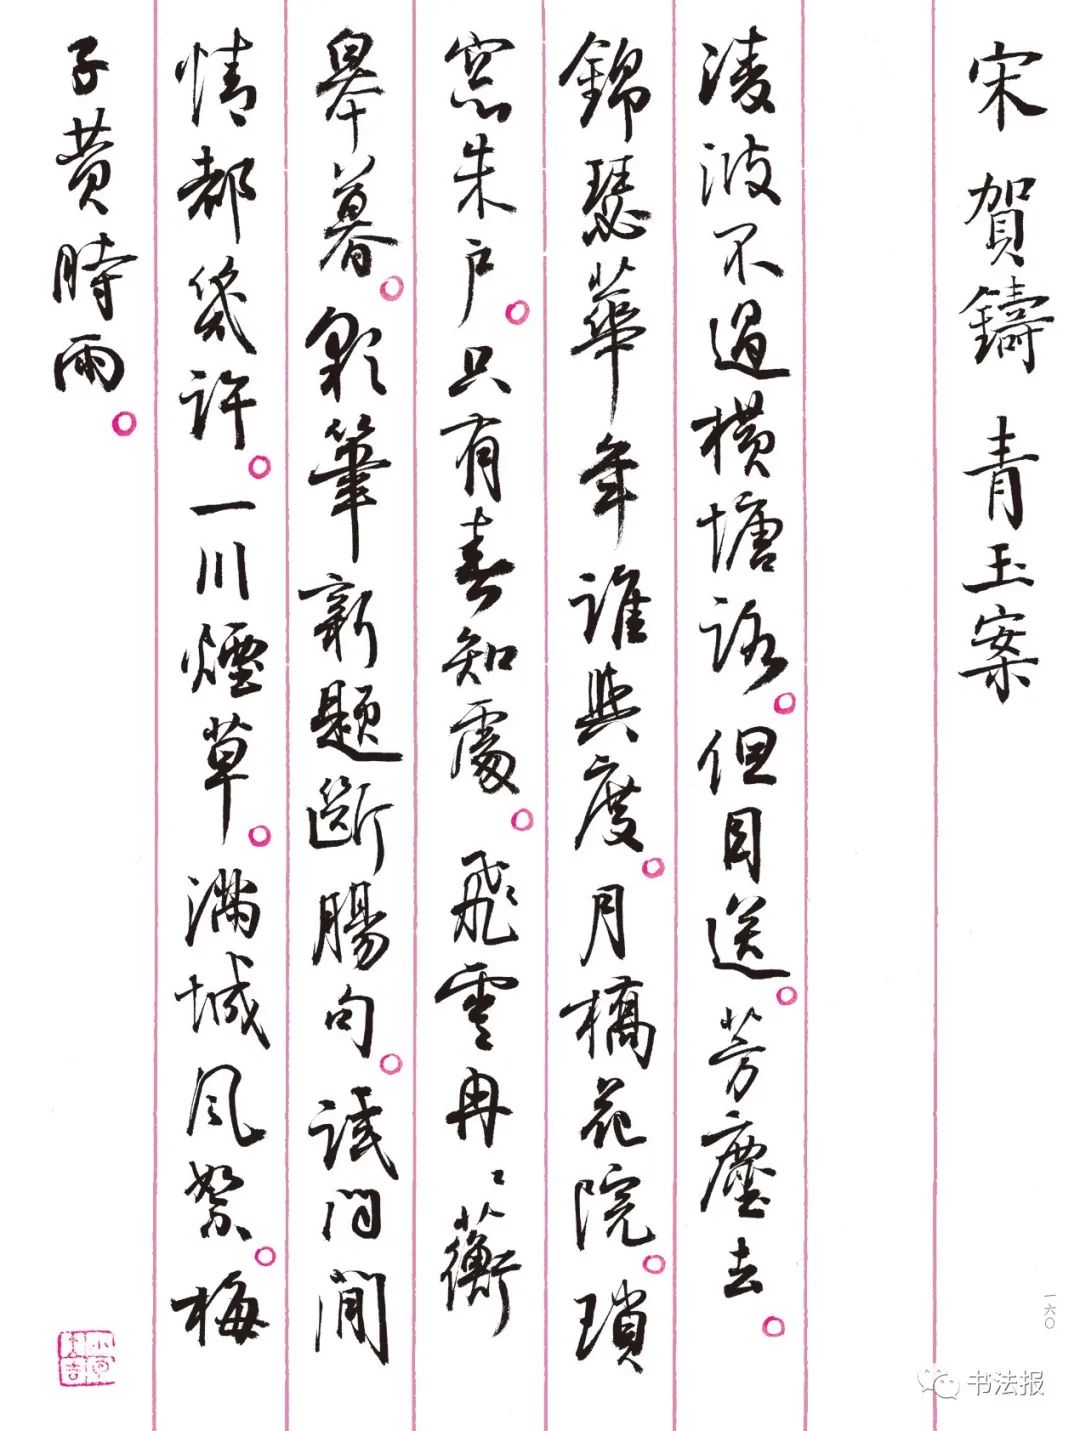 宋 賀鑄 青玉案
淩波不過橫塘路。但目送。芳塵去。
錦瑟華年誰與度。月橋花院。瑣
窓朱戶。只有春知處。飛雲冉〻蘅
皋暮。彩筆新題斷腸句。試問閒
情都幾許。一川煙草。滿城風絮。梅
子黃時雨。
一六〇
书法报